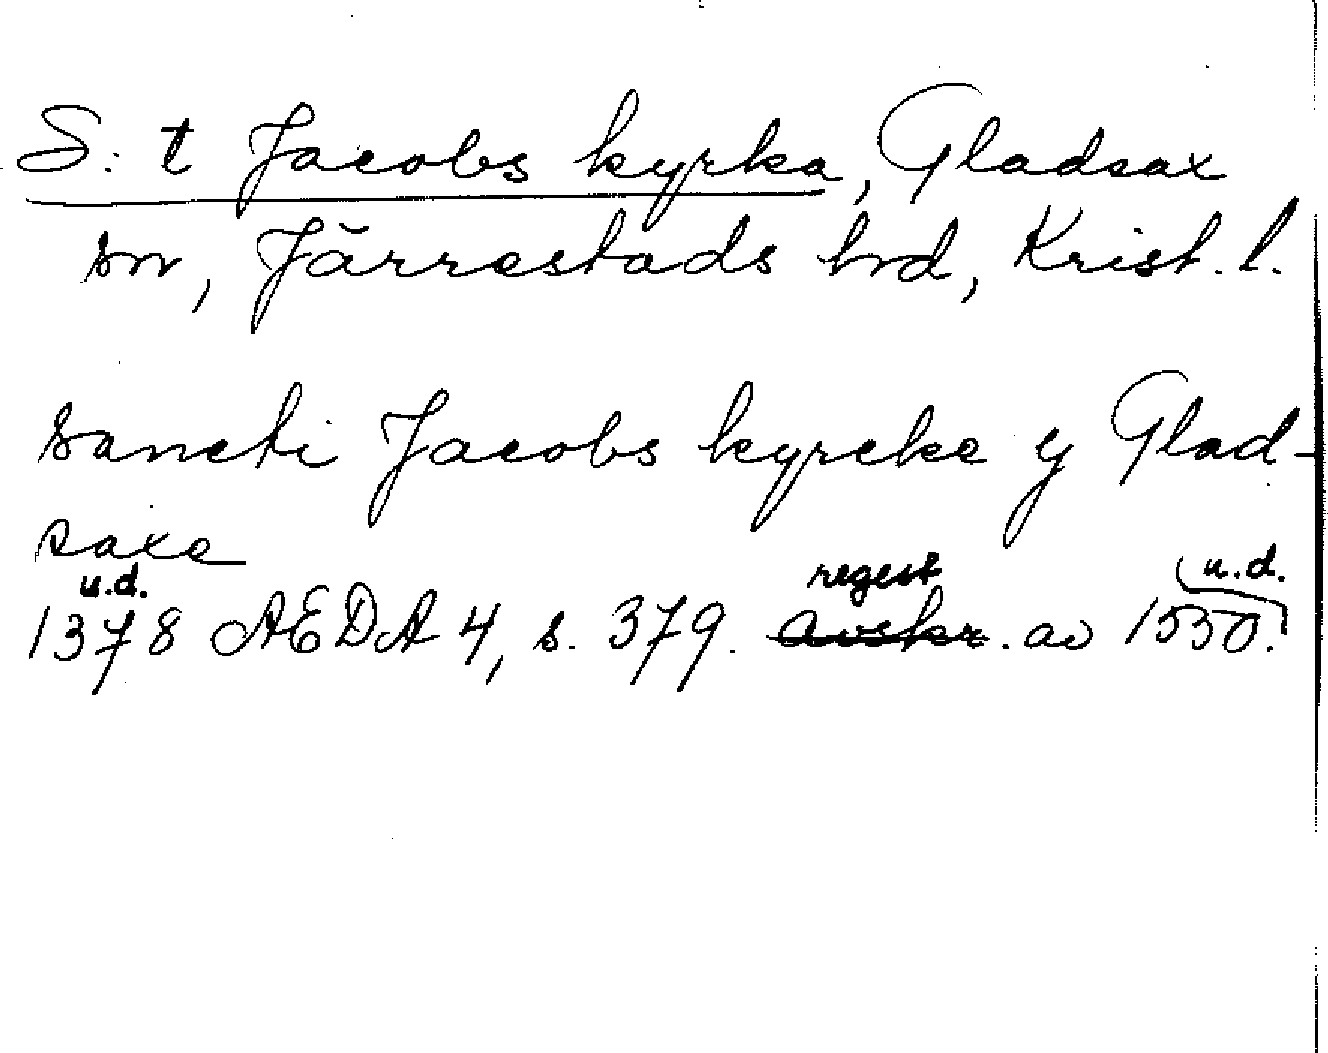 S:t Jacobs kyrka, Gladsax
sn, Järrestads hrd, Krist. l.
sancti Jacobs kyrcke y Glad-
saxe
u.d. regest u.d.
1378 AEDA 4, s. 379. avskr. av 1550.